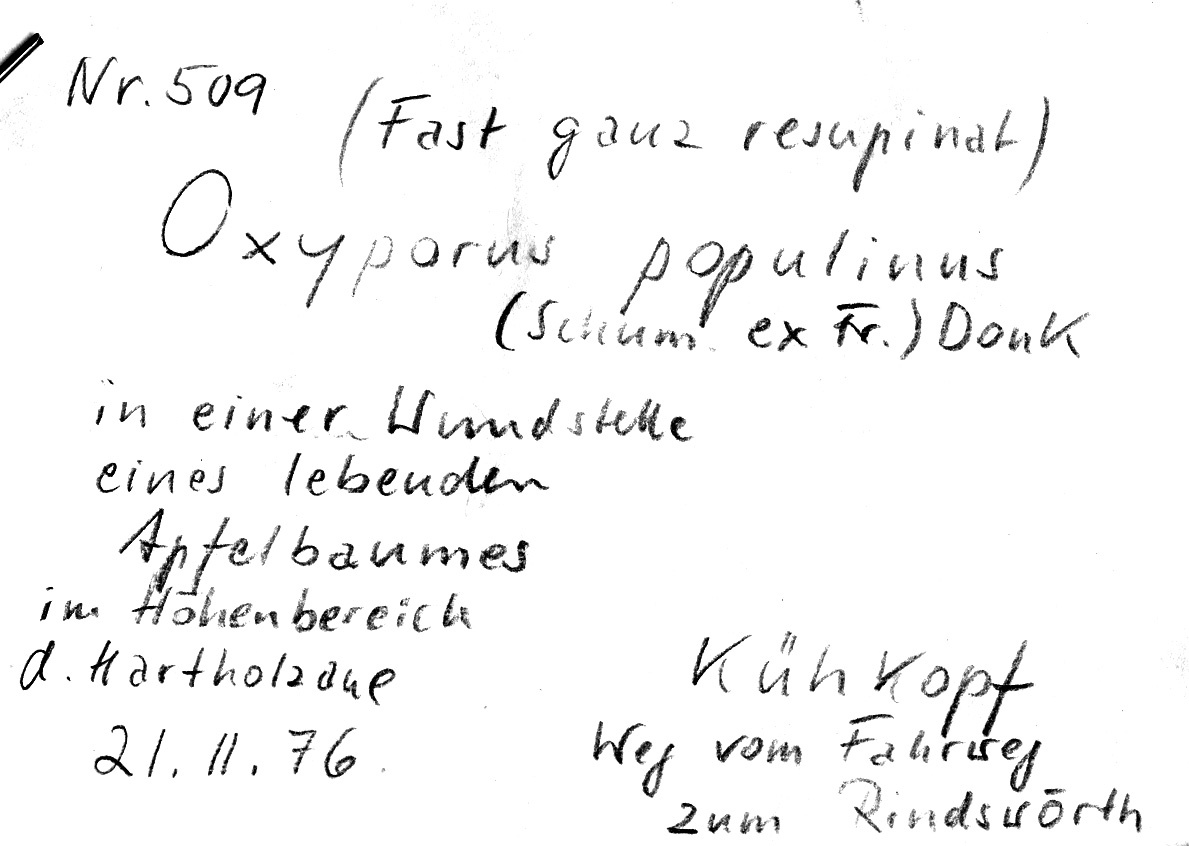 Nr. 509
(Fast ganz resupinat)
Oxyporus populinus
(Schum. ex Fr.) Donk
in einer Wundstelle
eines lebenden
Apfelbaumes
im Höhenbereich
d. Hartholzaue
21. 11. 76
Kühkopf
Weg vom Fahrweg
zum Rindswörth